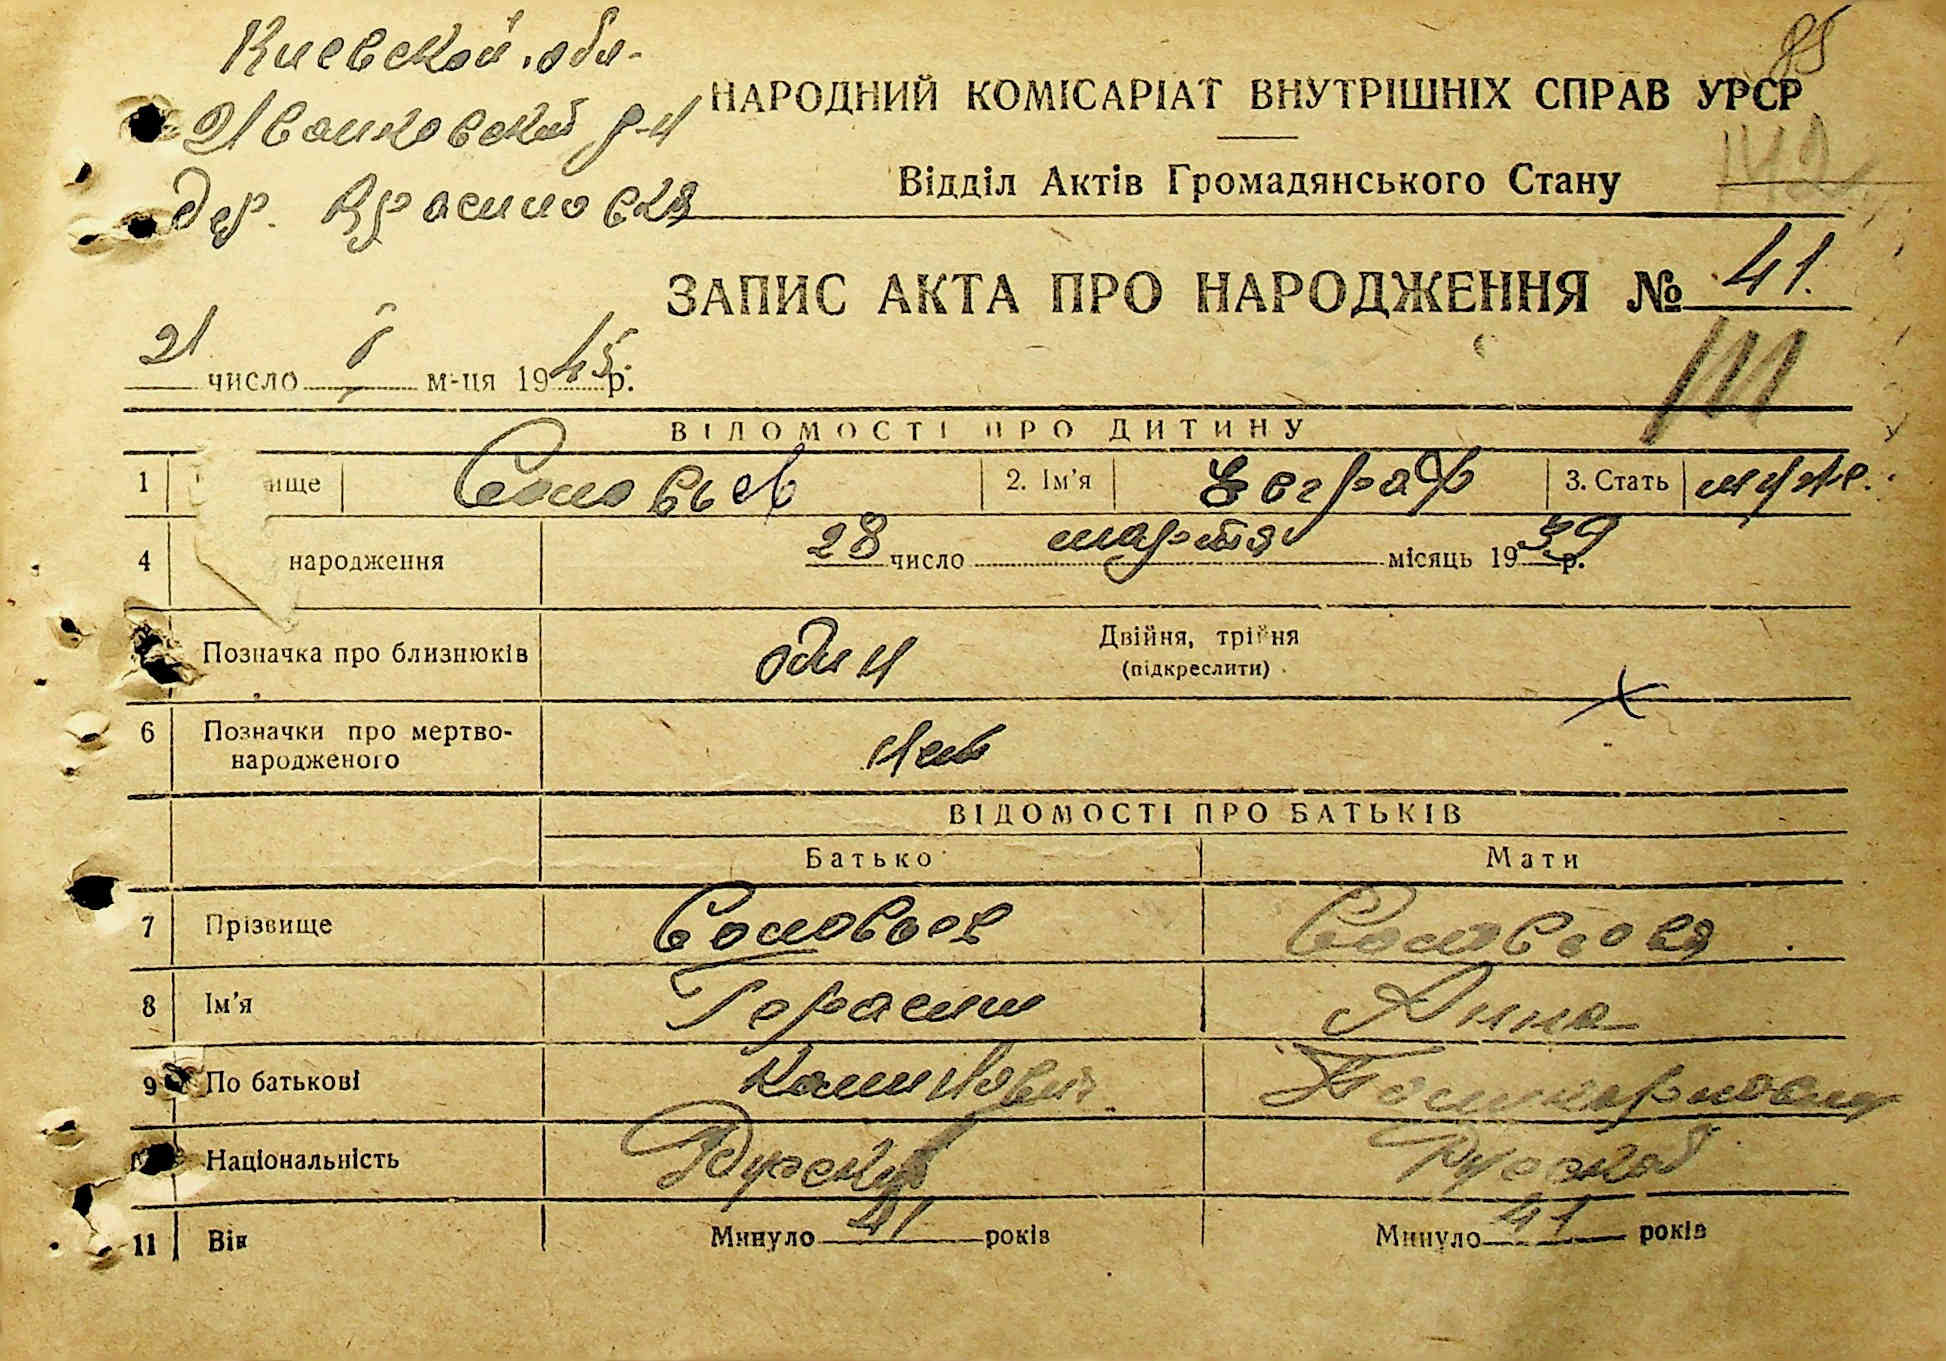 Киевской обл.
85
Иванковский р-н
НАРОДНИЙ КОМІСАРІАТ ВНУТРІШНІХ СПРАВ УРСР
дер. Красиловка
Відділ Актів Громадянського Стану
ЗАПИС АКТА ПРО НАРОДЖЕННЯ № 41.
21 число I м-ця 1945 р.
ВІДОМОСТІ ПРО ДИТИНУ
1 ище Соловьев 2. Ім'я Евграф 3. Стать муж.
4 народження 28 число марта місяць 1939 р.
Позначка про близнюків один Двійня, трійня
(підкреслити)
6 Позначки про мертво-
народженого нет
ВІДОМОСТІ ПРО БАТЬКІВ
Батько Мати
7 Прізвище Соловьев Соловьева
8 Ім'я Герасим Анна
9 По батькові
Національність Русский Русская
11 Вік Минуло 41 років Минуло 41 років